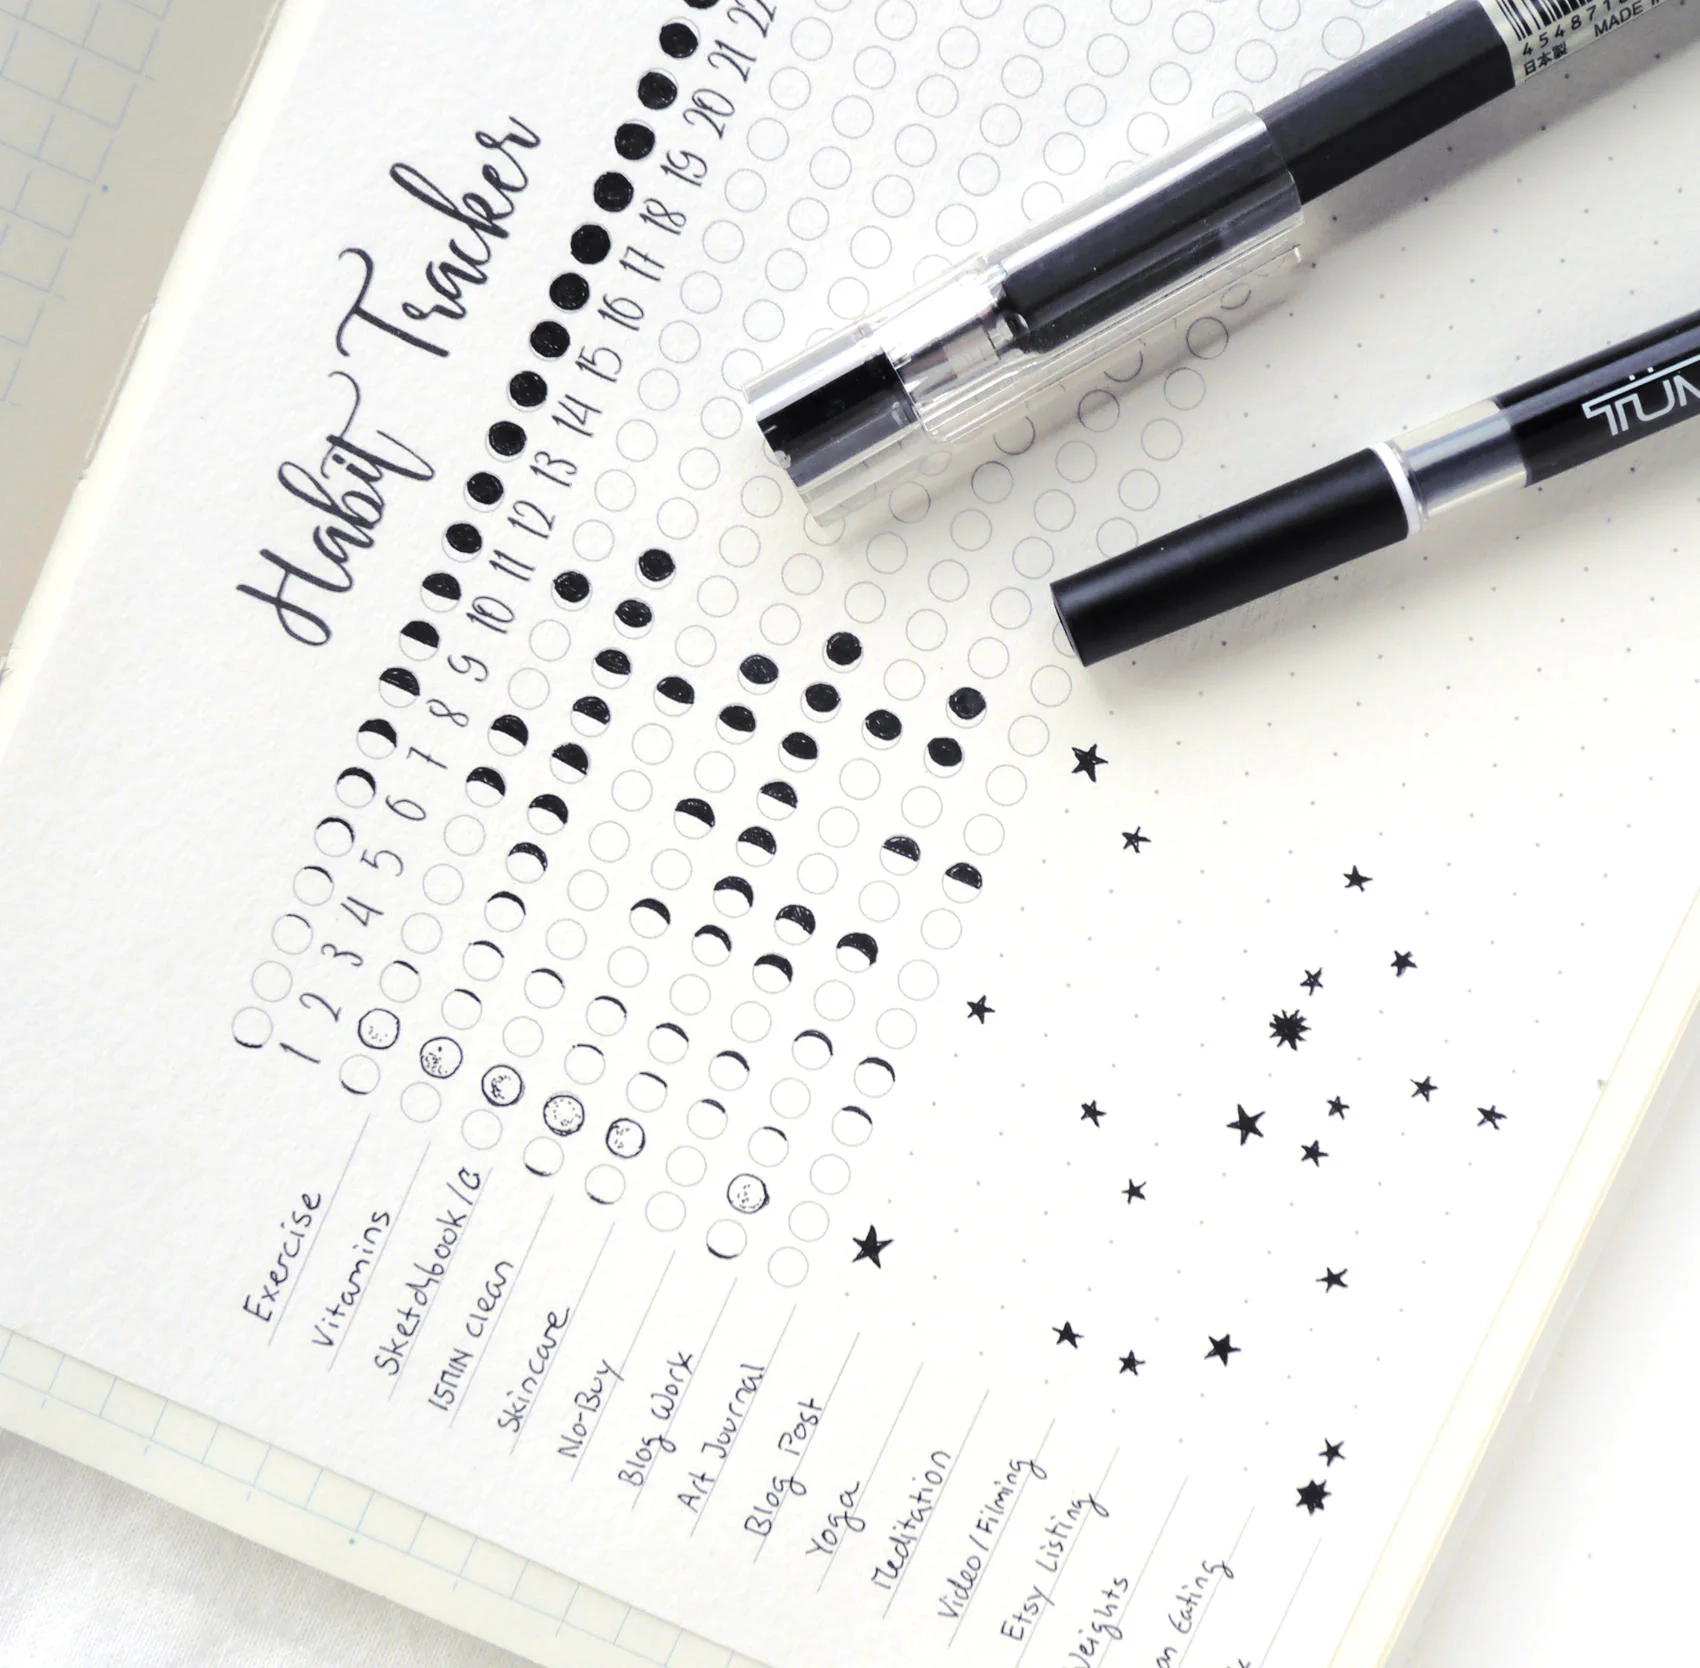 Habit Tracker
1 2 3 4 5 6 7 8 9 10 11 12 13 14 15 16 17 18 19 20 21 22
Exercise
Vitamins
15MIN Clean
Skincare
No-Buy
Blog Work
Art Journal
Blog Post
Yoga
Meditation
Video/Filming
Etsy Listing
Weights
an Eating
日本製
MADE